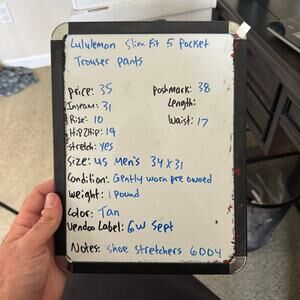 Lululemon Slim Fit 5 Pocket
Trouser pants
price: 35 Poshmark: 38
Inseam: 31 Length:
Rise: 10 Waist: 17
Hip2Hip: 19
Stretch: yes
Size: US Men's 34x31
Condition: Gently worn pre owned
Weight: 1 Pound
Color: Tan
Vendoo Label: GW Sept
Notes: Shoe Stretchers 6004